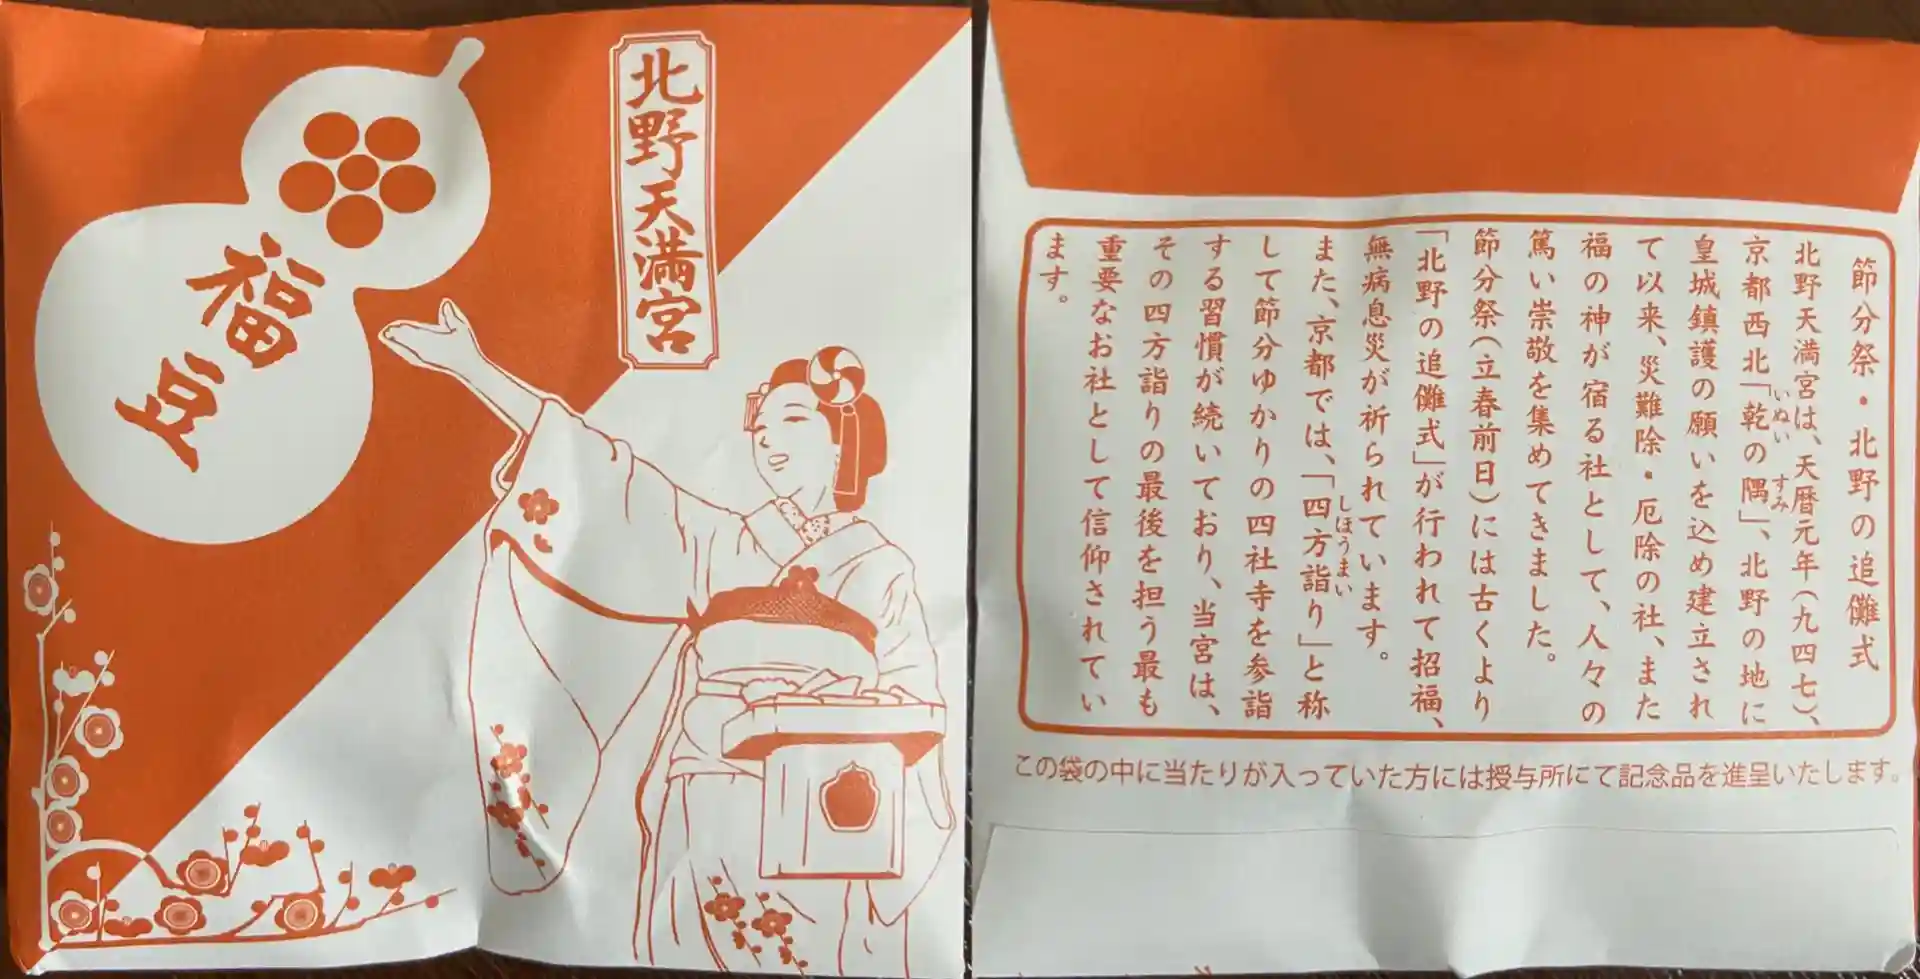 北野天満宮
福豆
節分祭・北野の追儺式
北野天満宮は、天暦元年（九四七）、
京都西北「乾の隅」、北野の地に
いぬい すみ
皇城鎮護の願いを込め建立され
て以来、災難除・厄除の社、また
福の神が宿る社として、人々の
篤い崇敬を集めてきました。
節分祭（立春前日）には古くより
「北野の追儺式」が行われて招福、
無病息災が祈られています。
また、京都では、「四方詣り」と称
しほうまい
して節分ゆかりの四社寺を参詣
する習慣が続いており、当宮は、
その四方詣りの最後を担う最も
重要なお社として信仰されてい
ます。
この袋の中に当たりが入っていた方には授与所にて記念品を進呈いたします。